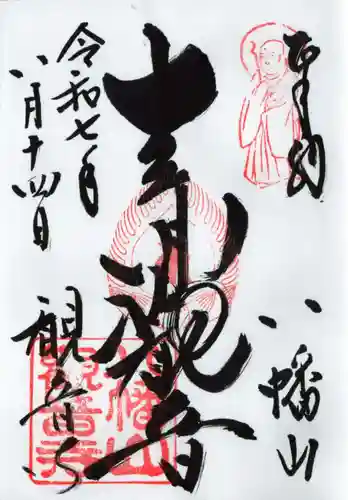 奉納
八幡山
十一面観音
令和七年
八月十四日
観音寺
八幡山
観音寺